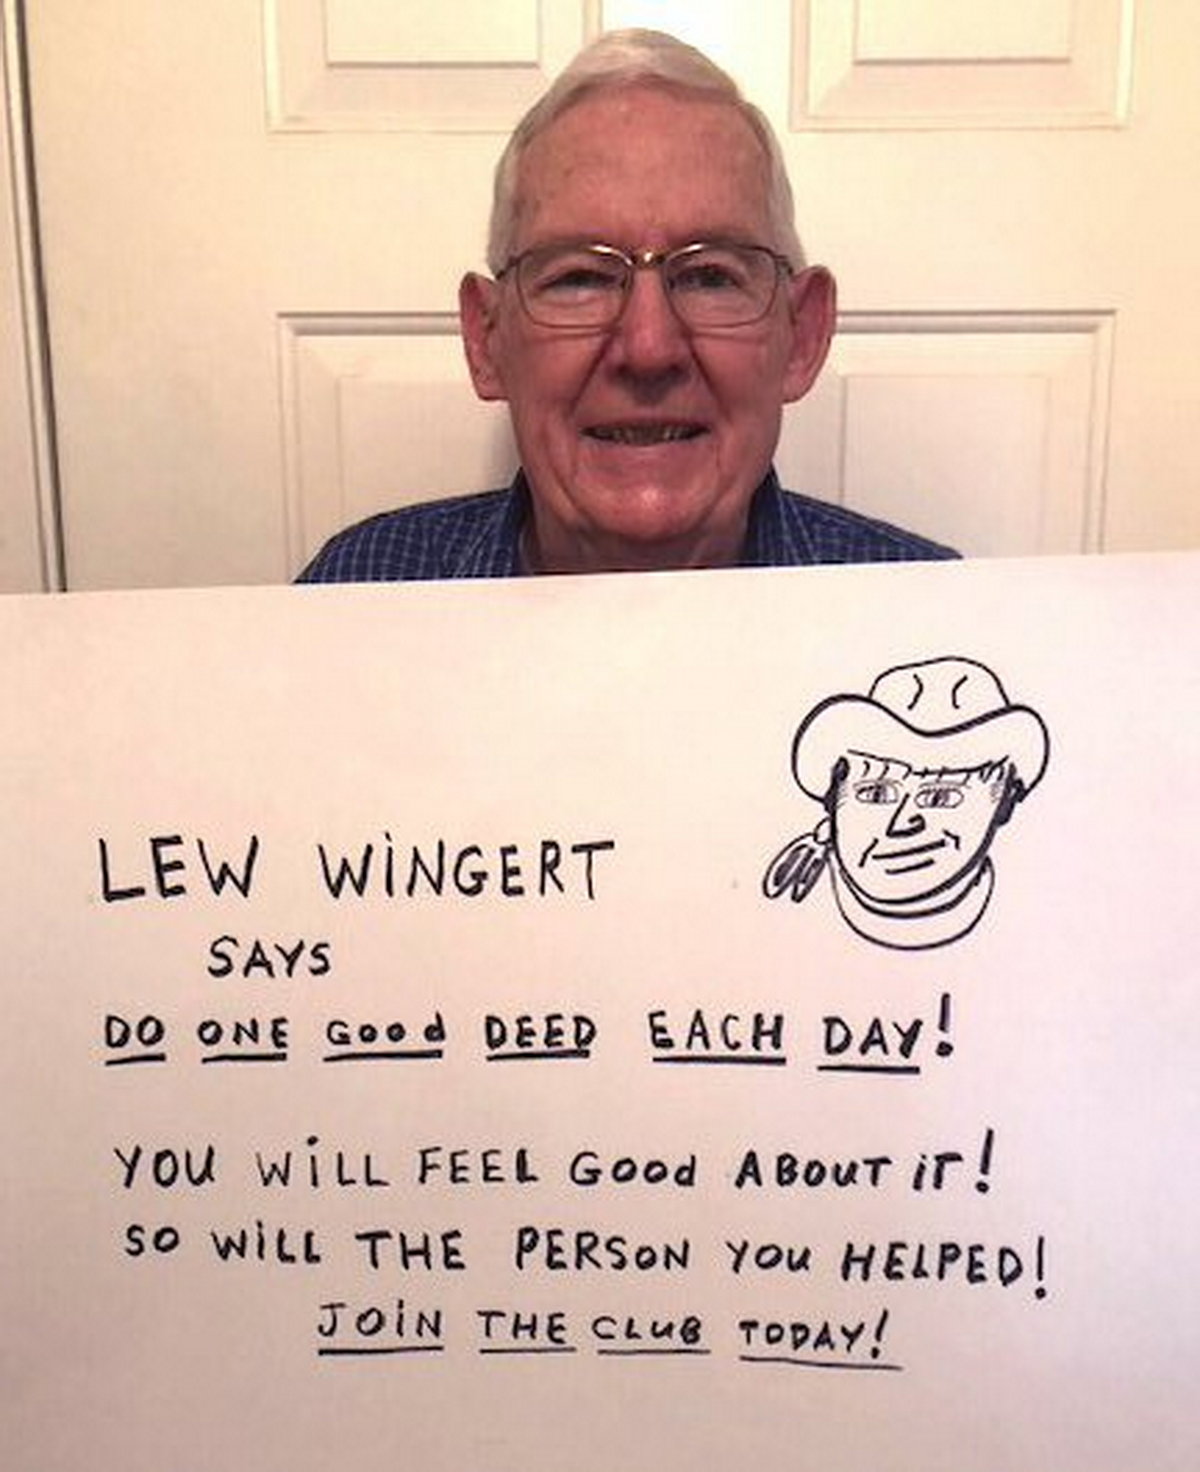 LEW WiNGERT
SAYS
DO ONE Good DEED EACH DAY!
YOU WiLL FEEL Good ABOUT iT!
SO WiLL THE PERSON YOU HELPED!
JOiN THE CLUB TODAY!